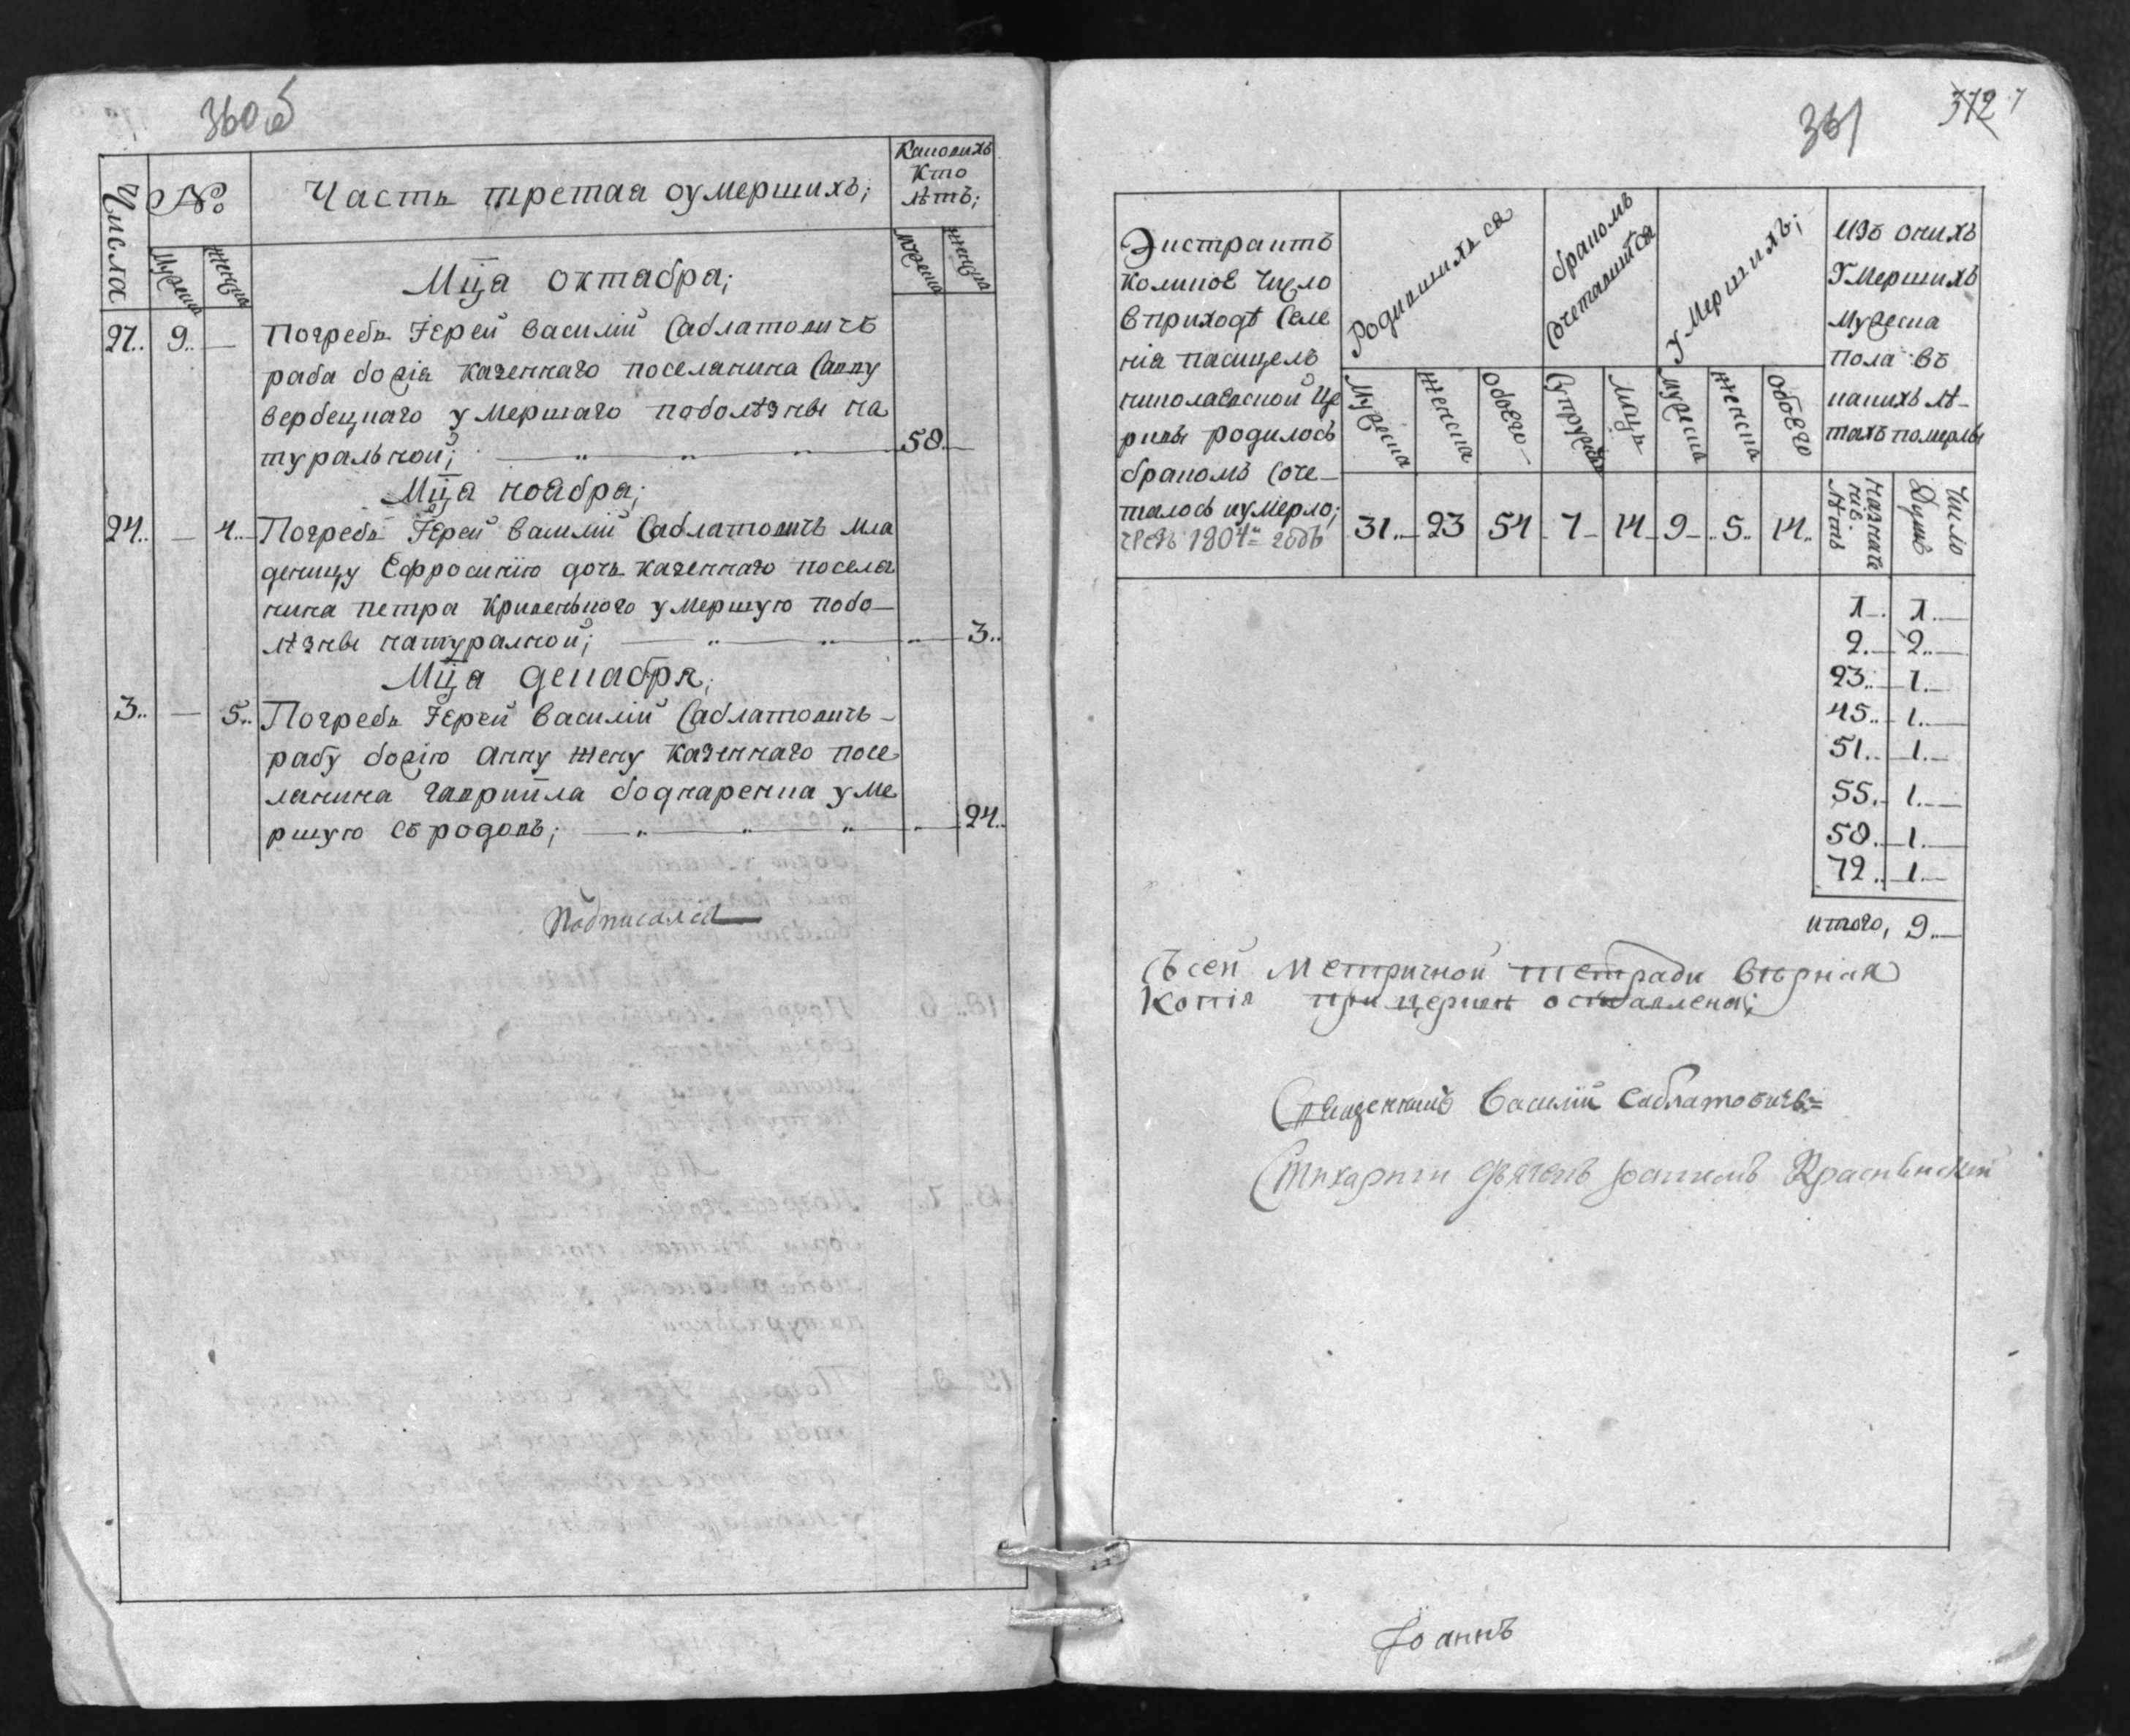 360 об
Числа
№
Часть третая оумершихъ;
Каковихъ
Кто
лѣтъ;
Мужеска
Женска
Мужеска
Женска
Мца октабра;
27.. 9.. — Погребъ Іерей василій Саблатовичъ
раба божія казеннаго поселанина Савву
вербецкаго умершаго поболѣзны на
туральной; 58.
Мца ноабра;
24.. — 4.. Погребъ Іерей василій Саблатовичъ мла
деницу Ефросинію дочь казеннаго посела
нина петра Кривенького умершую побо—
лѣзны натуралной; 3..
Мца декабра;
3.. — 5.. Погребъ Іерей василій Саблатовичъ
рабу божію анну жену казеннаго посе
ланина гавриіла боднаренка уме
ршую съ родовъ; 24..
Подписалса
361
372
Экстрактъ
коликое число
вприходѣ Селе
нія пасицелъ
николаевской Це
рквы родилось
бракомъ соче—
талось иумерло;
чрезъ 1804 годъ
Родившихъ са
бракомъ
сочетавшихся
умершихъ;
изъ онихъ
Умершихъ
мужеска
пола въ
какихъ лѣ—
тахъ померлы
Мужеска
Женска
обоего
Супружествъ
лицъ
мужеска
женска
обоего
31.. 23 54 7 14 9 5.. 14..
лѣтъ
Число
Душъ
1. 1.
2. 2..
23.. 1.
45.. 1..
51.. 1.
55. 1.
58. 1.
72.. 1.
итого, 9.
Съ сей метричной тетради вѣрная
Копія при церквѣ оставлена;
Священникъ Василій Саблатовичъ=
Стихарнии дьячекъ Іоакимъ Краснѣнскій
Іоаннъ